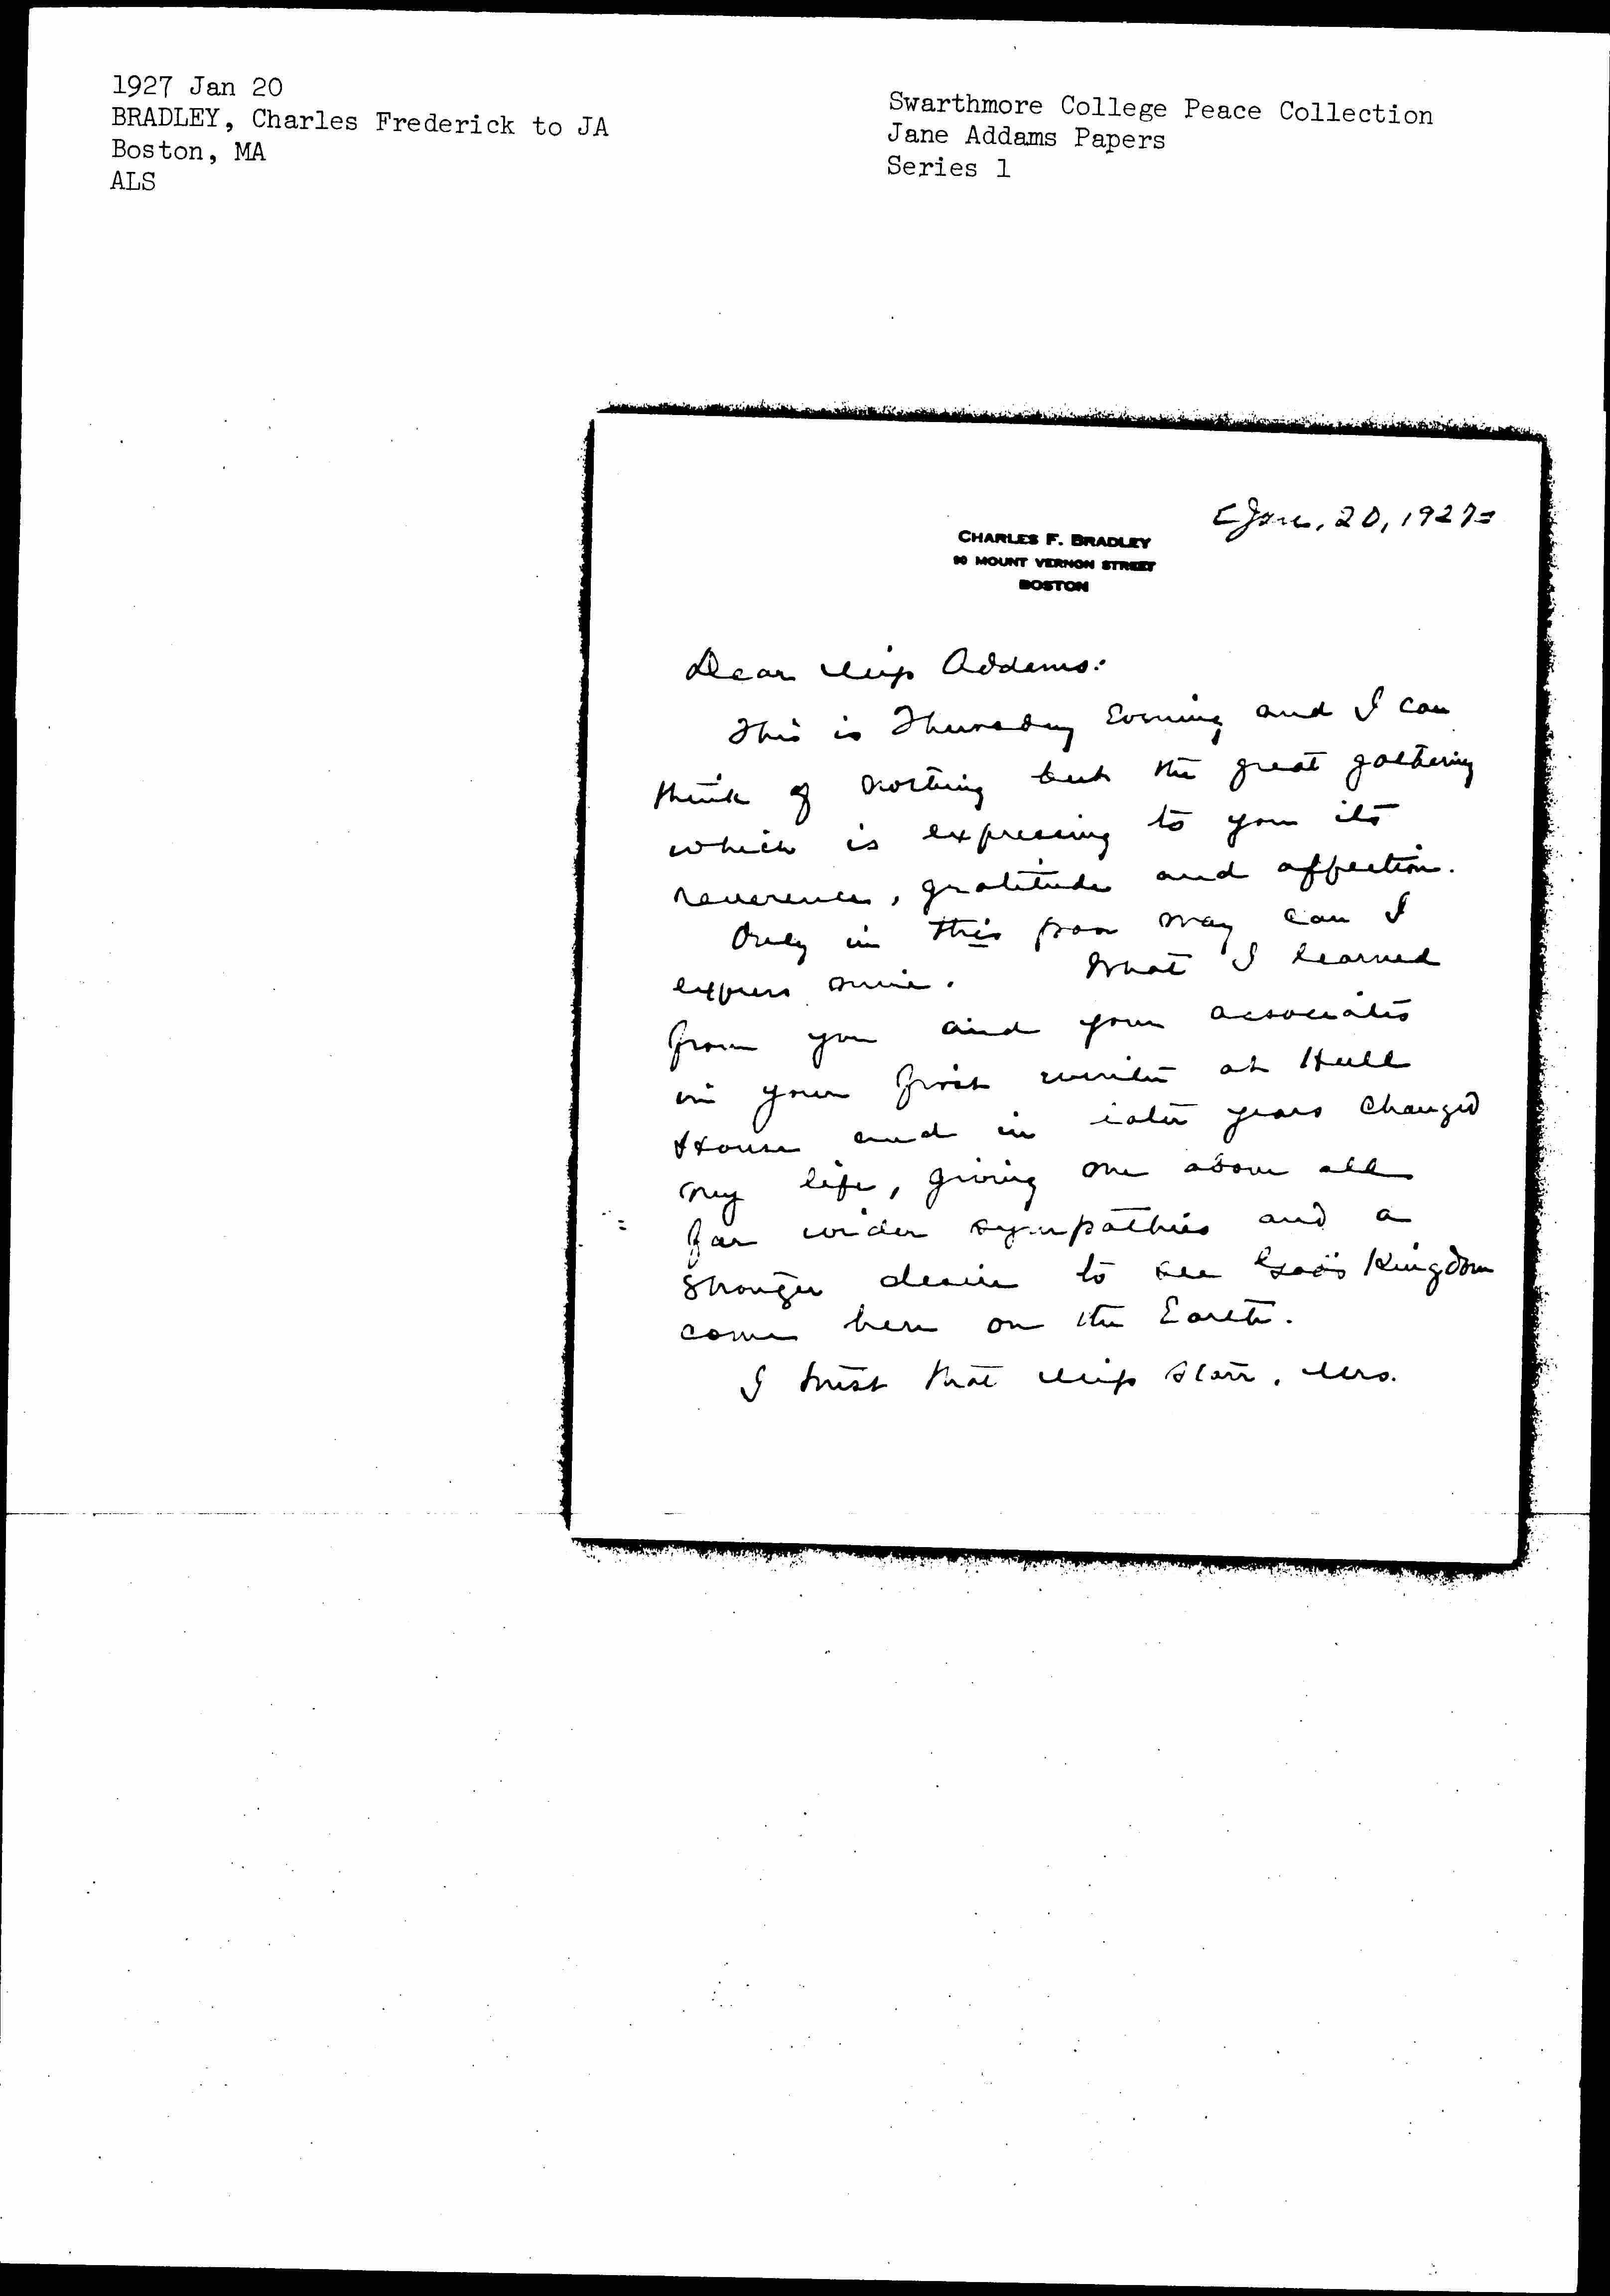 1927 Jan 20
BRADLEY, Charles Frederick to JA
Boston, MA
ALS
Swarthmore College Peace Collection
Jane Addams Papers
Series 1
[Jan. 20, 1927]
CHARLES F. BRADLEY
90 MOUNT VERNON STREET
BOSTON
Dear Miss Addams:
This is Thursday Evening and I can
think of nothing but the great gathering
which is expressing to you its
reverence, gratitude and affection.
Only in this poor way can I
express mine. What I learned
from you and your associates
in your first winter at Hull
House and in later years changed
my life, giving me above all
far wider sympathies and a
stronger desire to see God's Kingdom
come here on the Earth.
I trust that Miss Starr, Mrs.